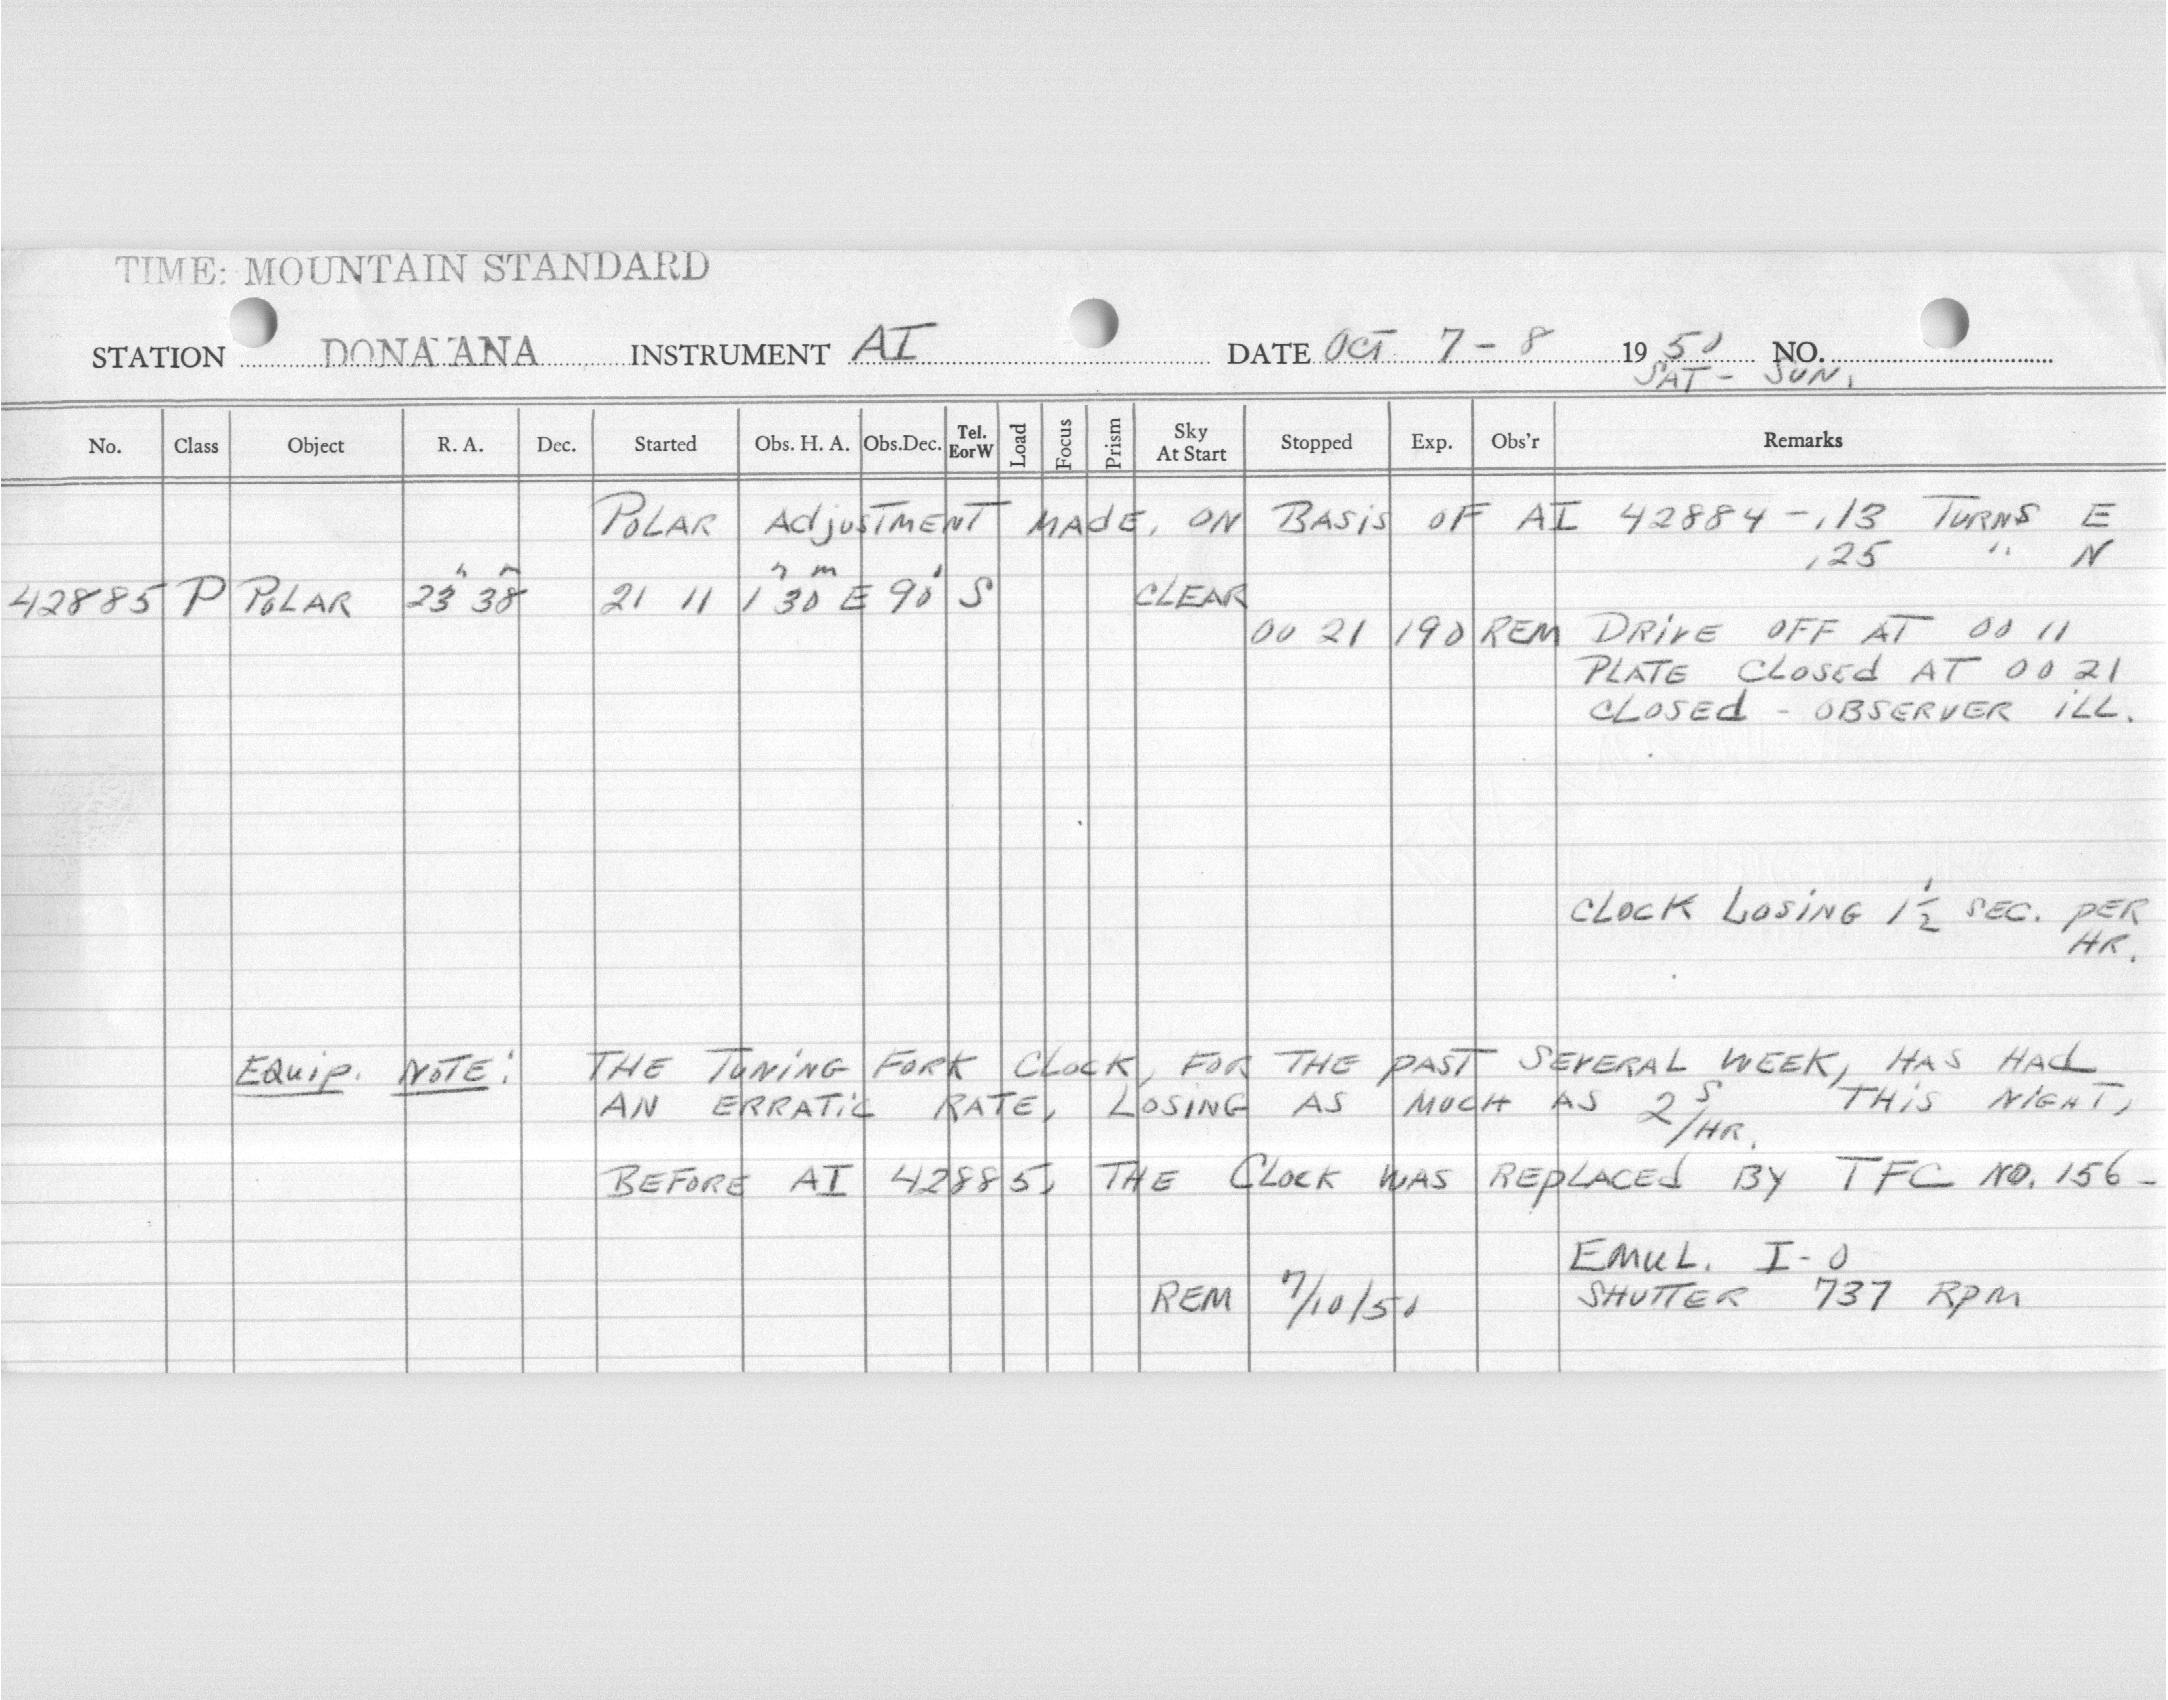 TIME: MOUNTAIN STANDARD
STATION DONA ANA INSTRUMENT AI DATE OCT 7-8 1950 NO.
SAT - SUN.
No. Class Object R. A. Dec. Started Obs. H. A. Obs.Dec. Tel. EorW Load Focus Prism Sky At Start Stopped Exp. Obs'r Remarks
POLAR AdjUSTMENT MAdE, ON BASIS OF AI 42884 - .13 TURNS E
.25 " N
42885 P POLAR 23h 38m 21 11 1h 30m E 90° S CLEAR
00 21 190 REM DRIVE OFF AT 00 11
PLATE CLOSEd AT 00 21
CLOSEd - OBSERVER iLL.
CLOCK LOSING 1½ SEC. PER
HR.
EQuip. NOTE: THE TUNING FORK CLOCK, FOR THE PAST SEVERAL WEEK, HAS HAd
AN ERRATIC RATE, LOSING AS MUCH AS 2 S/HR. THIS NIGHT,
BEFORE AI 42885, THE CLOCK WAS REPLACEd BY TFC NO. 156 -
EMUL. I-O
REM 7/10/50 SHUTTER 737 RPM